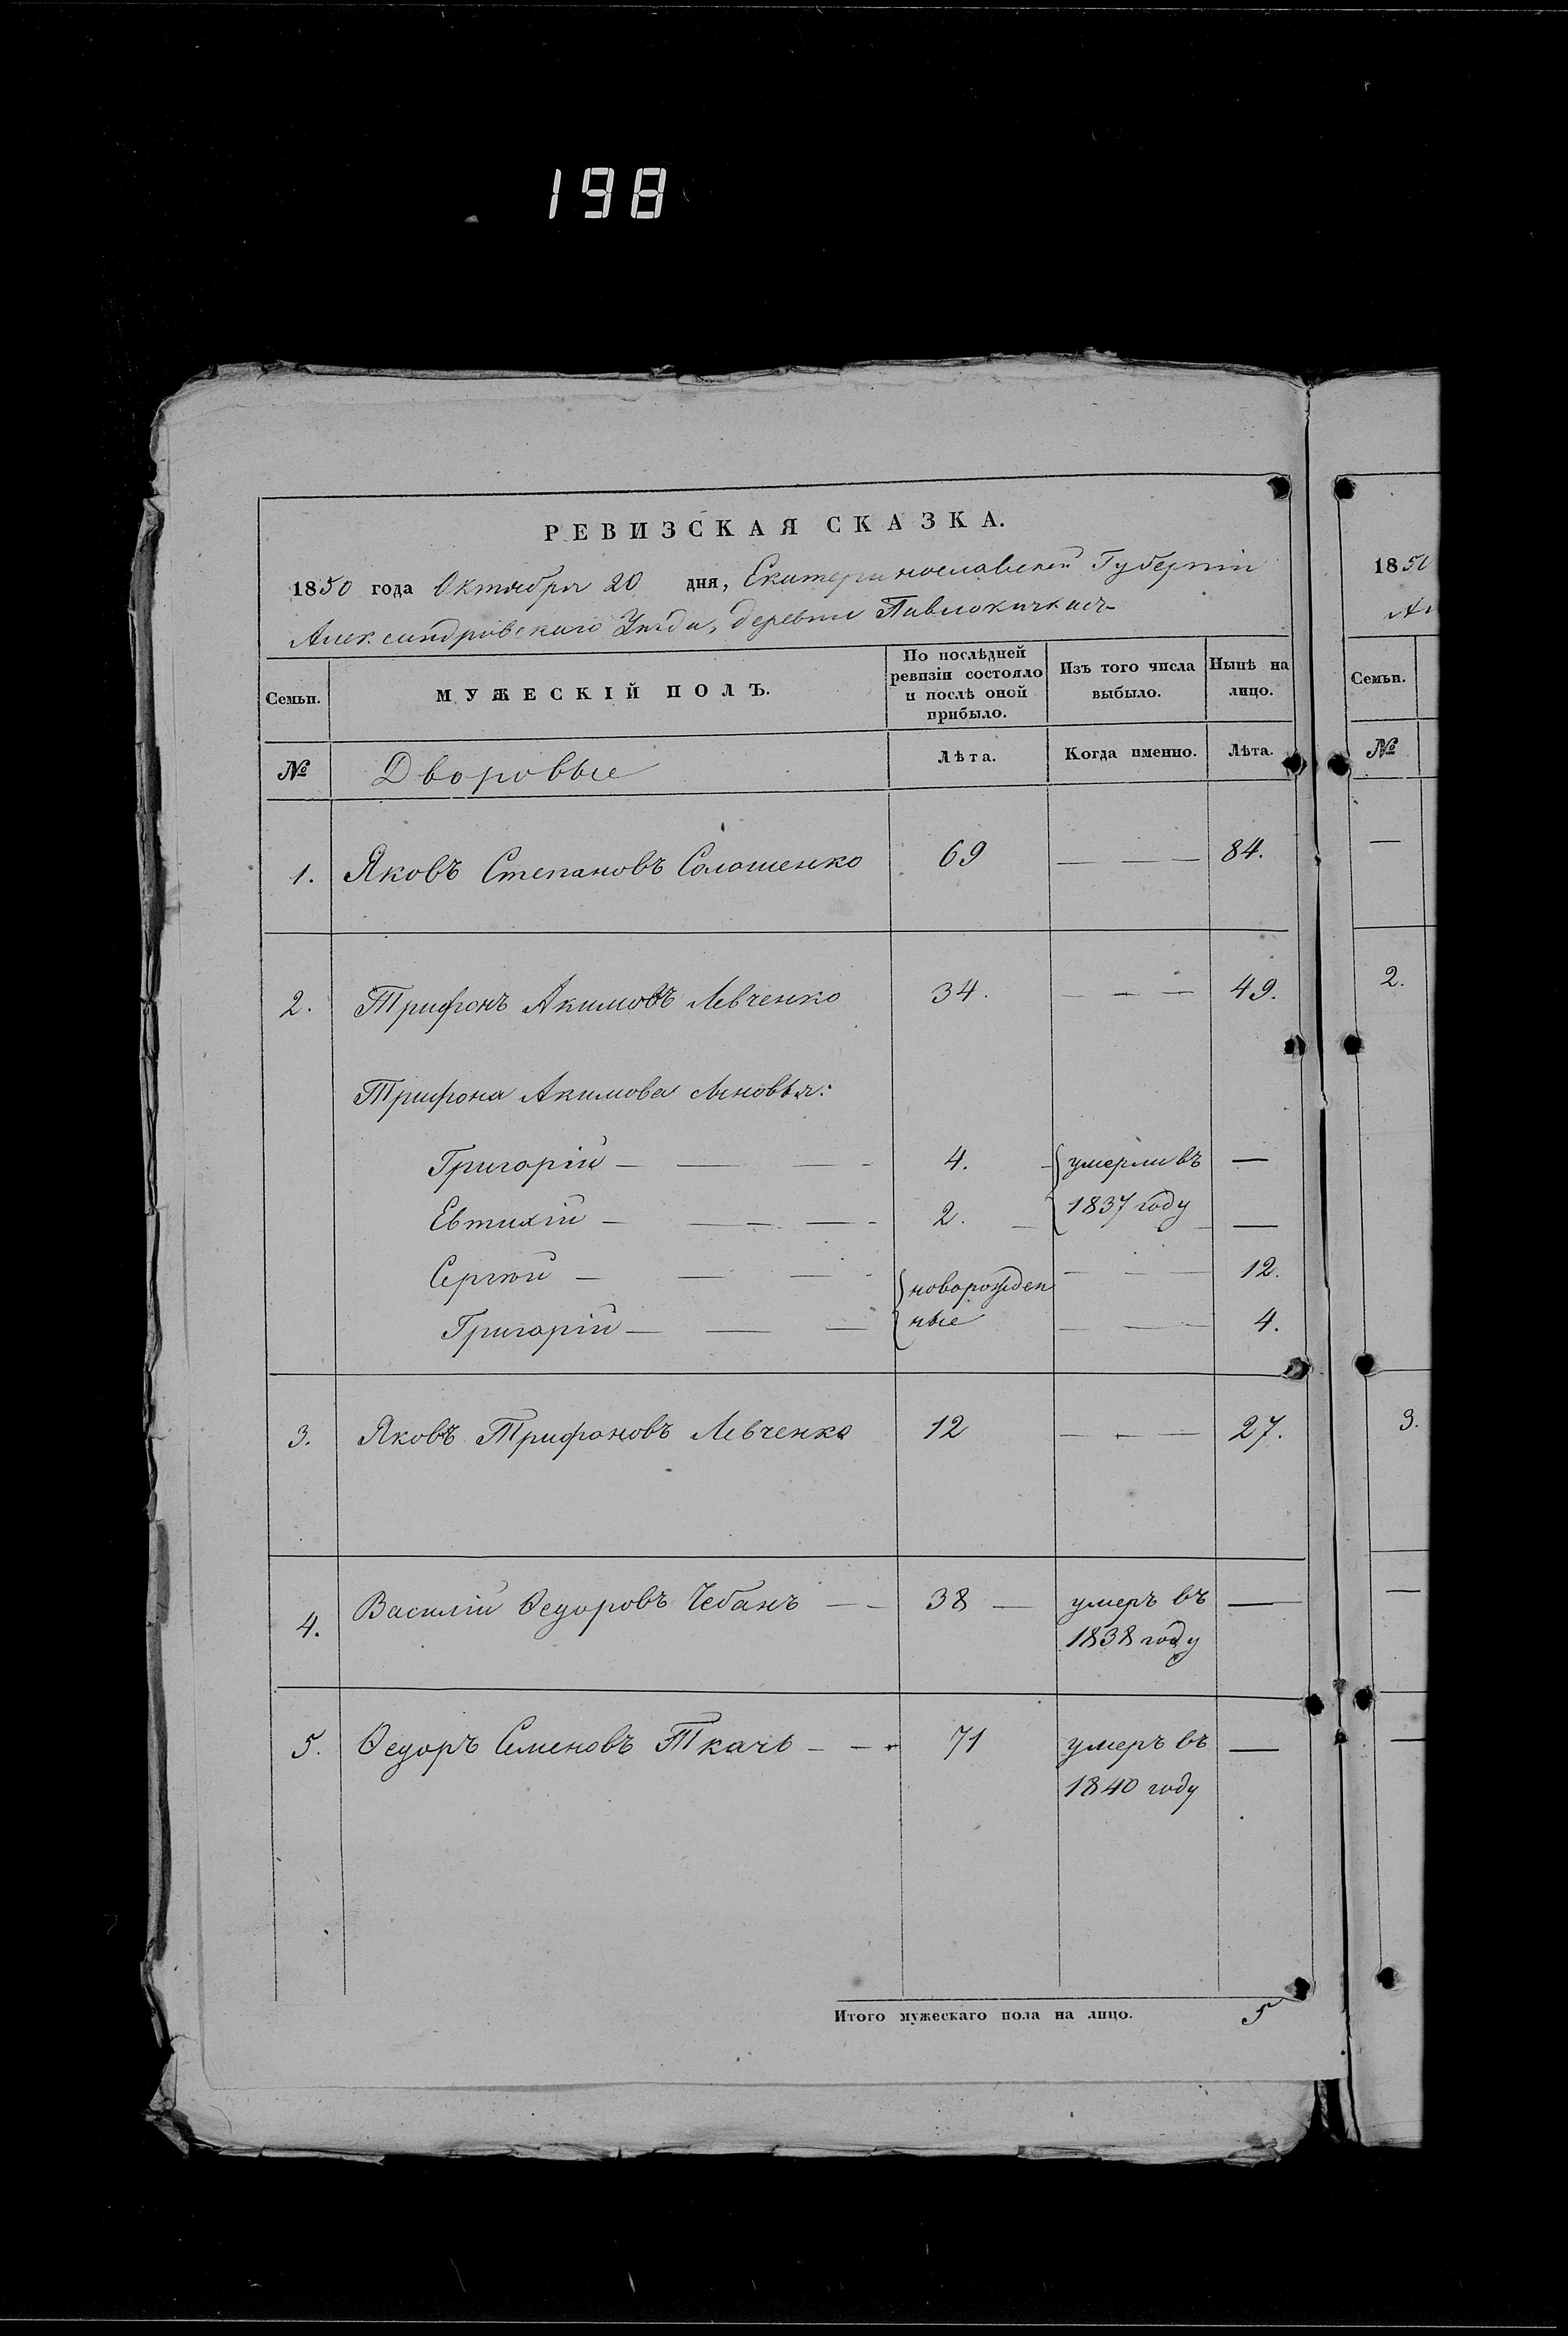 198
РЕВИЗСКАЯ СКАЗКА.
1850 года Октября 20 дня, Екатеринославской Губерніи
Александровского Уѣзда, деревни Павлокичкасъ
Семьи. МУЖЕСКІЙ ПОЛЪ. По послѣдней ревизіи состояло и послѣ оной прибыло. Изъ того числа выбыло. Нынѣ на лицо.
№ Дворовые Лѣта. Когда именно. Лѣта.
1. Яковъ Степановъ Солошенко 69 — — — 84.
2. Трифонъ Акимовъ Левченко 34. — — — 49.
Трифона Акимова сыновья:
Григорій — — — - 4. - умерли въ —
Евтихій — — - — - 2. — 1837 году —
Сергѣй — — — - новорожден — — 12.
Григорій — — — ные — — 4.
3. Яковъ Трифоновъ Левченко 12 — - — 27.
4. Василій Ѳедоровъ Чебанъ — - 38 — умеръ въ —
1838 году
5. Ѳедоръ Семеновъ Ткачь - - - 71 умеръ въ —
1840 году
Итого мужескаго пола на лицо. 5
1850
Семьи.
№
—
2.
3.
—
—